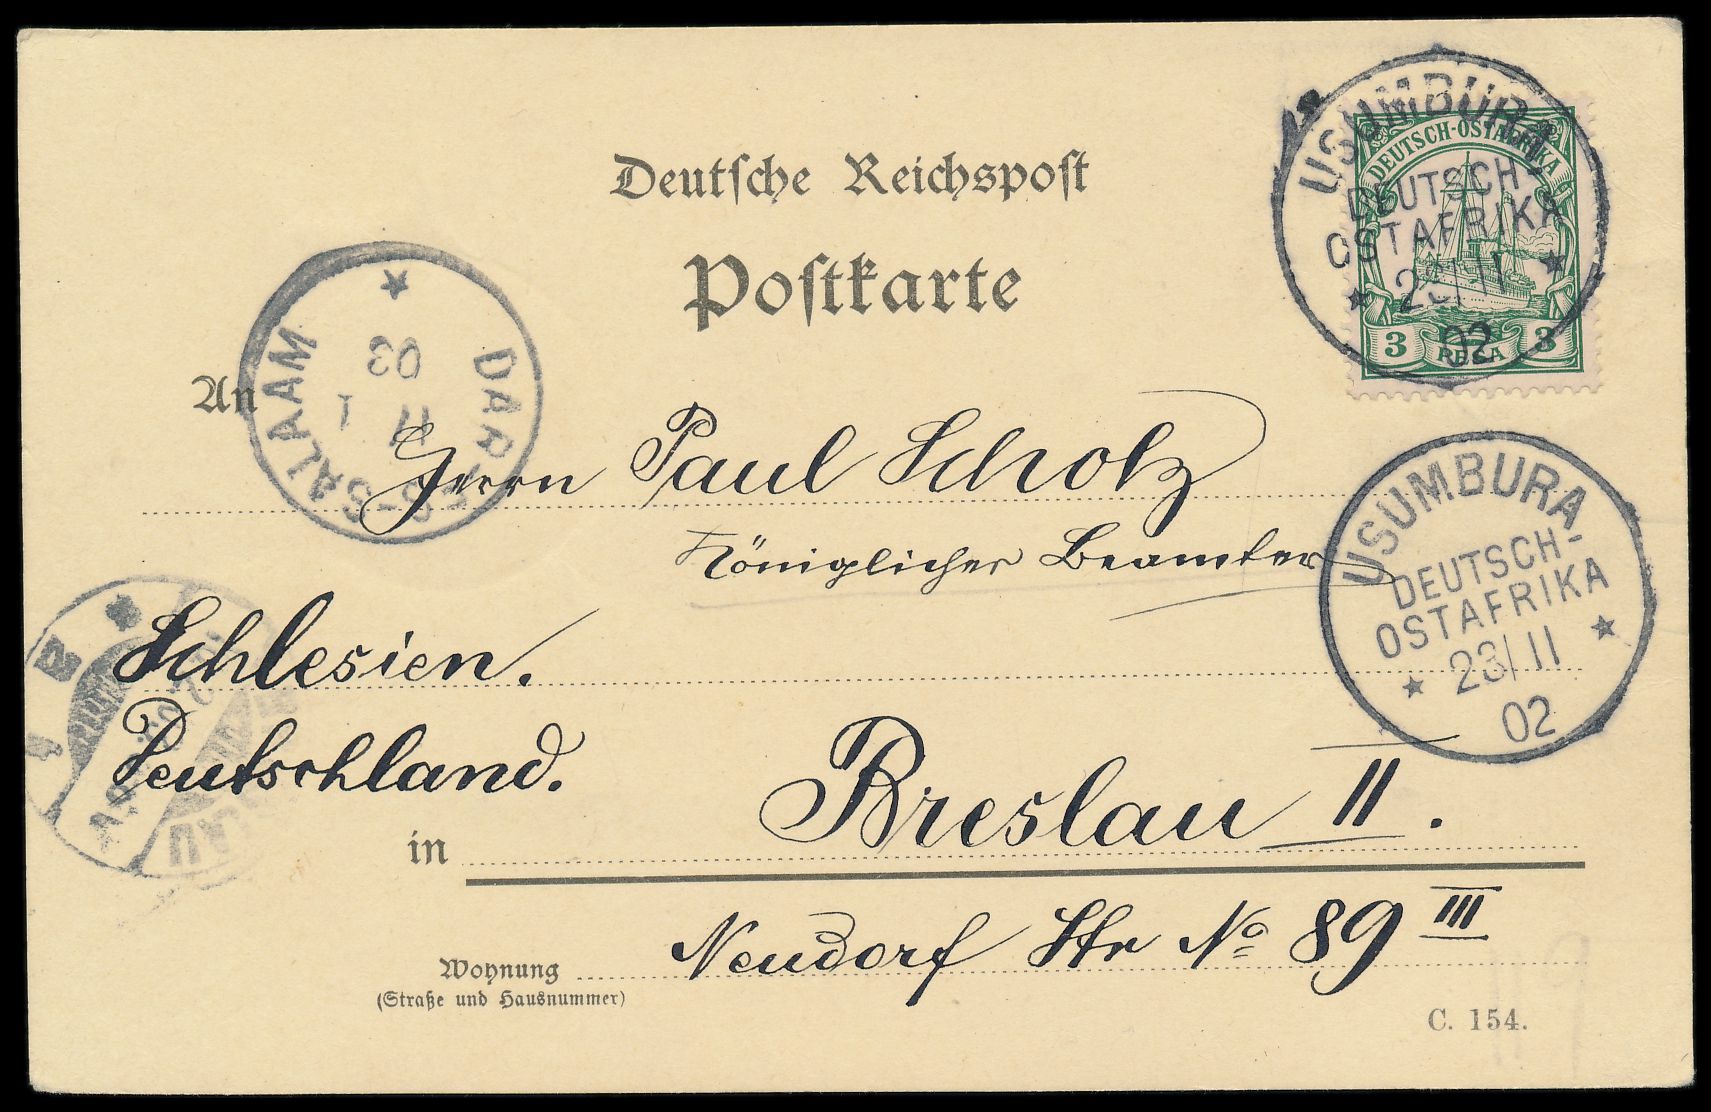 Deutsche Reichspost
Postkarte
USUMBURA
DEUTSCH-
OSTAFRIKA
23/11
02
DEUTSCH-OSTAFRIKA
3 PESA 3
DAR-ES-SALAAM
17 1
03
An
Herrn Paul Scholz
Königlicher Beamter
USUMBURA
DEUTSCH-
OSTAFRIKA
23/11
02
Schlesien.
Deutschland.
in Breslau II.
Wohnung
(Straße und Hausnummer)
Neudorf Str No 89 III
C. 154.